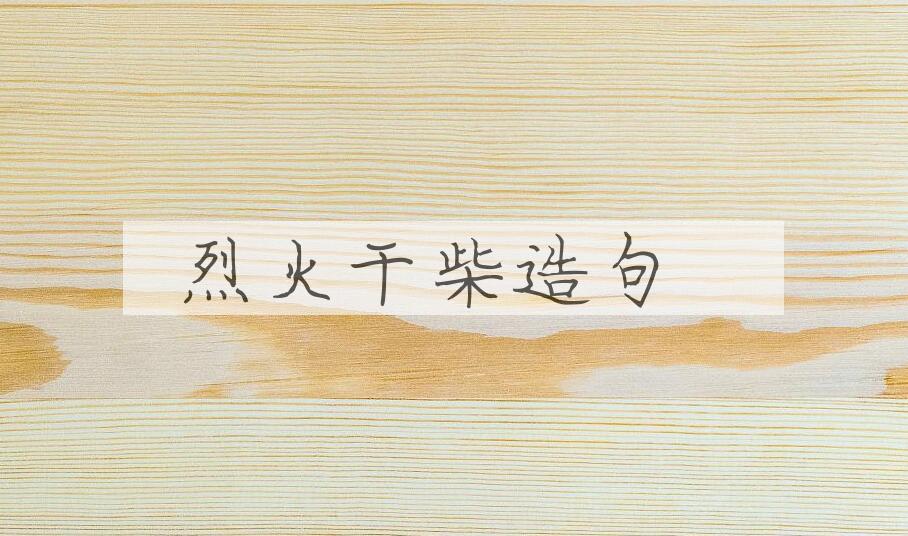 烈火干柴造句